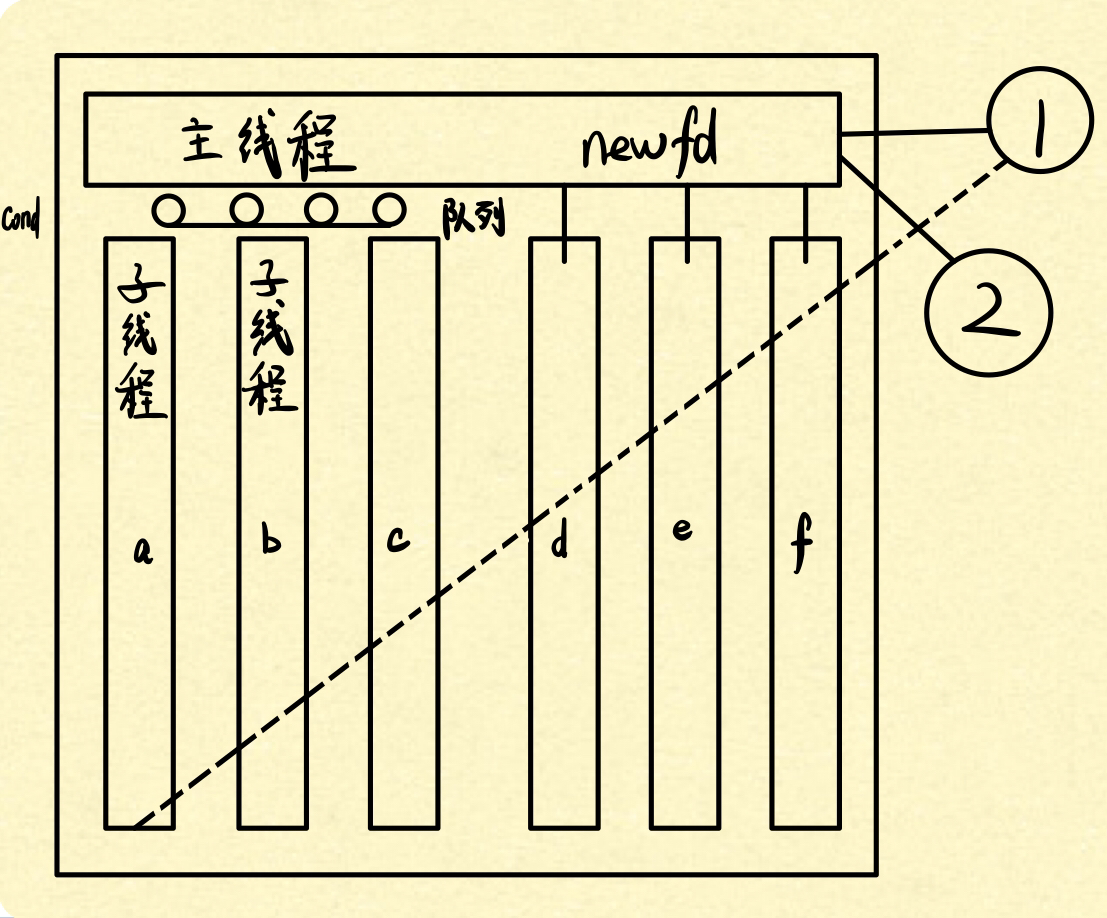 主线程 newfd
1
cond
队列
2
子线程
子线程
a
b
c
d
e
f